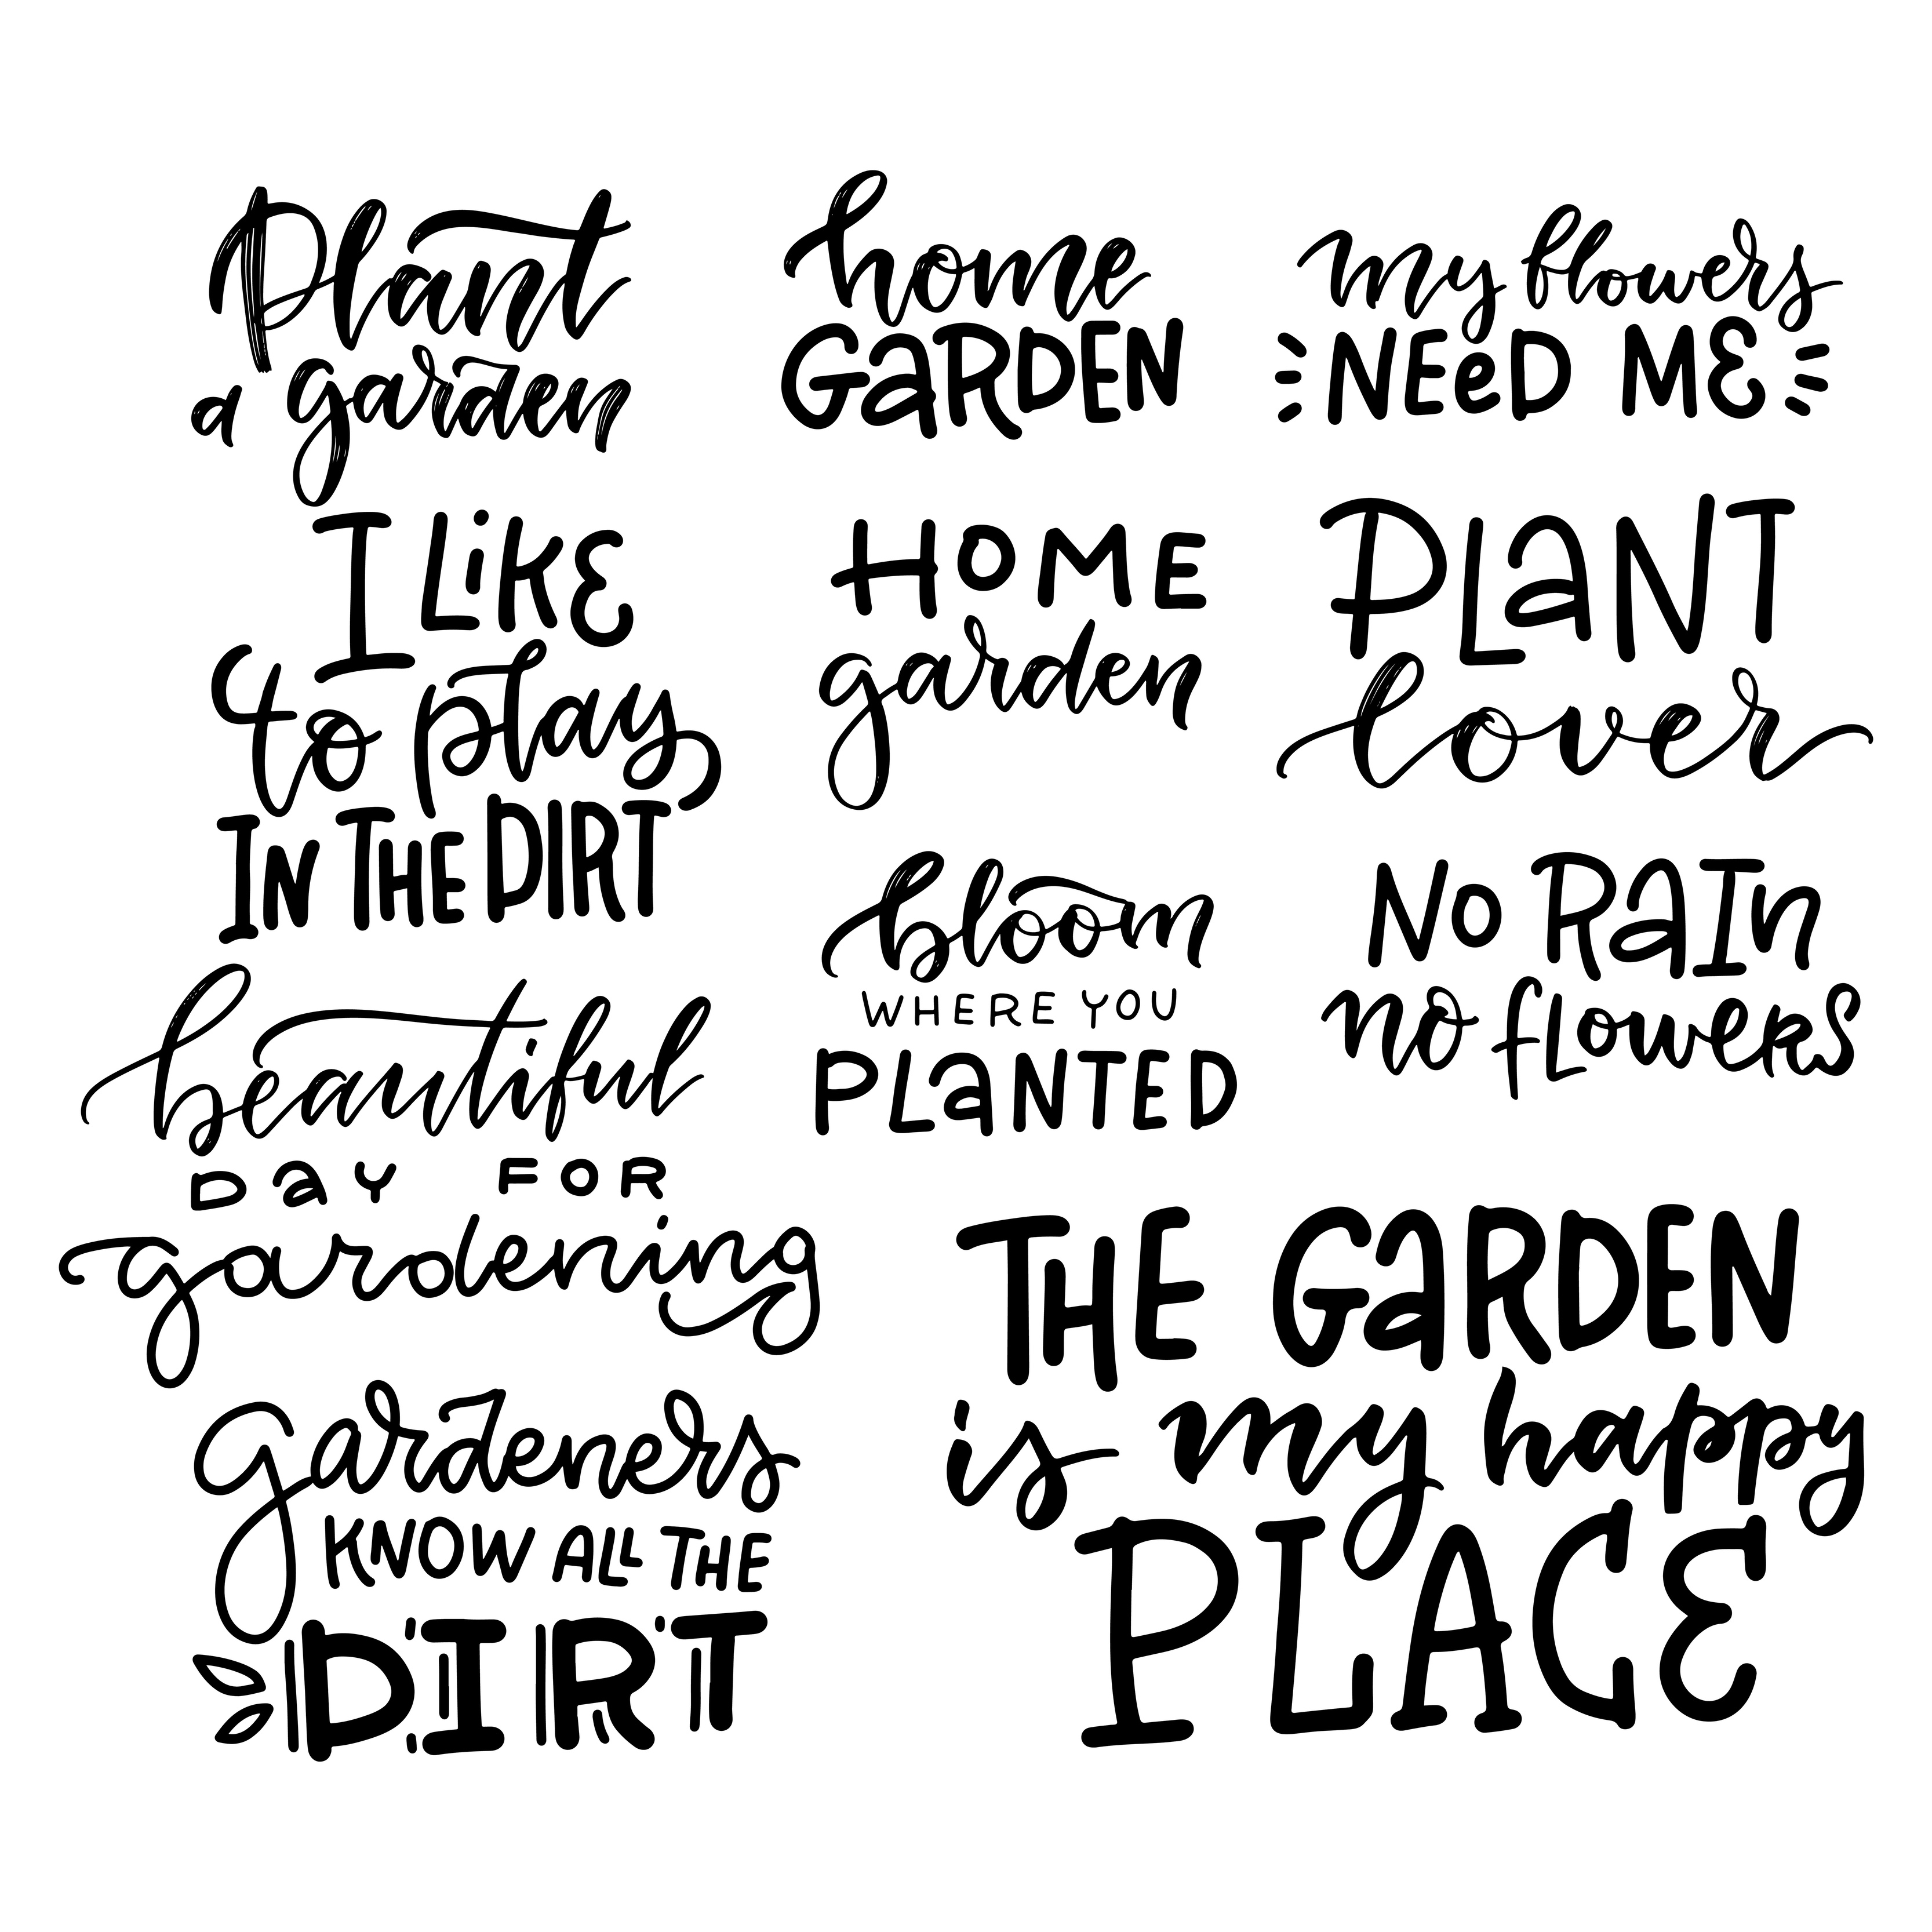 Plant
a garden
home
GARDEN
my flowers
NEED ME
I LiKE
to play
IN THE DIRT
HOME
garden
PLANT
lover
bloom
WHERE YOU
PLANTED
NO RAIN
no FLowers
beautiful
DAY FOR
gardening
gardeners
KNOW ALL THE
DIRT
THE GARDEN
is my happy
PLACE